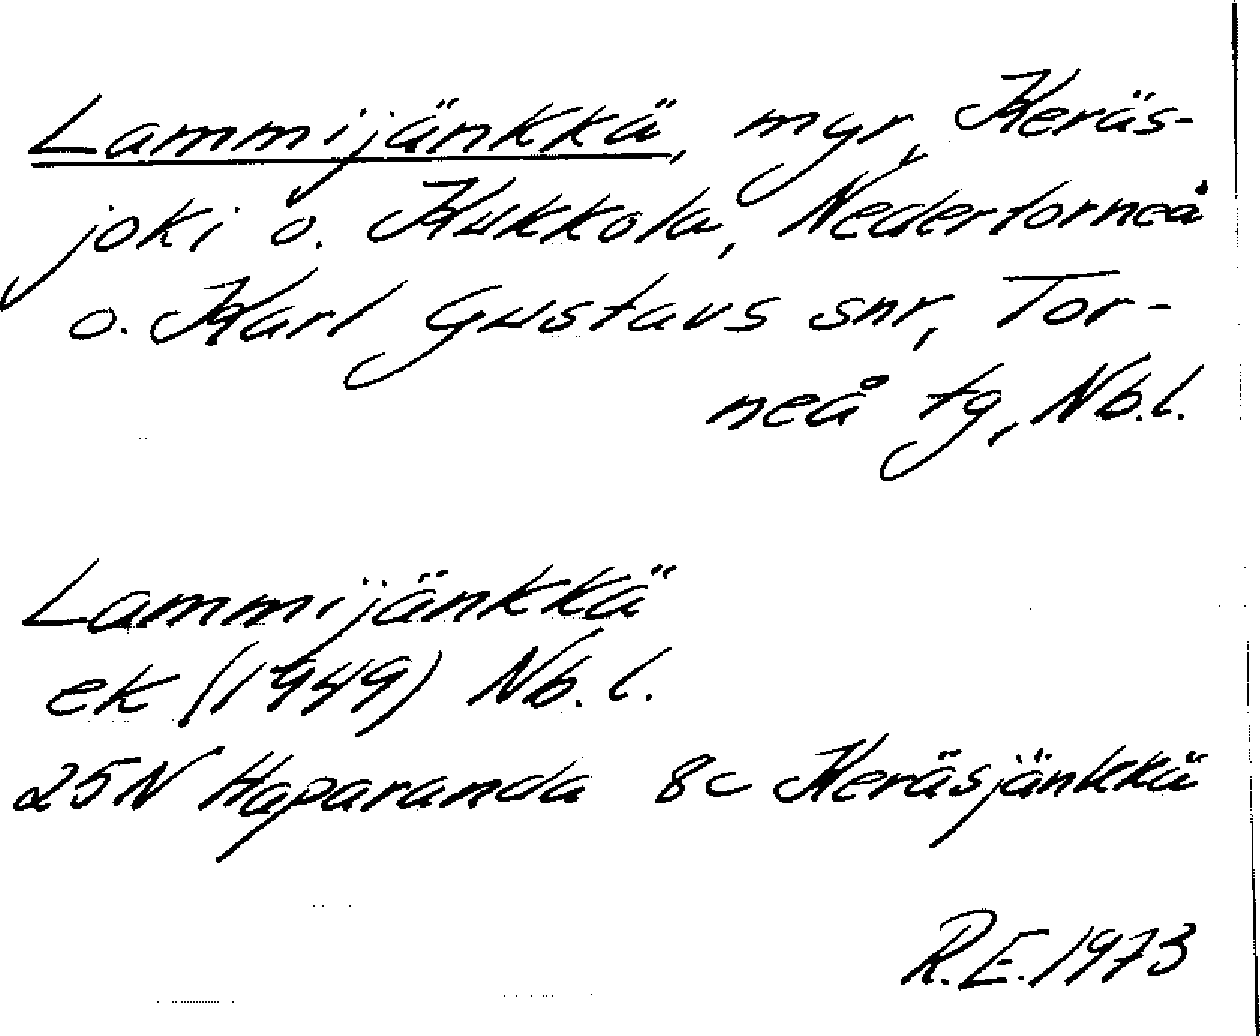 Lammijänkkä, myr, Keräs-
joki o. Kukkola, Nedertorneå
o. Karl Gustavs snr, Tor-
neå tg, Nb.l.
Lammijänkkä
ek (1949) Nb.l.
25N Haparanda 8c Keräsjänkkä
R.E. 1973